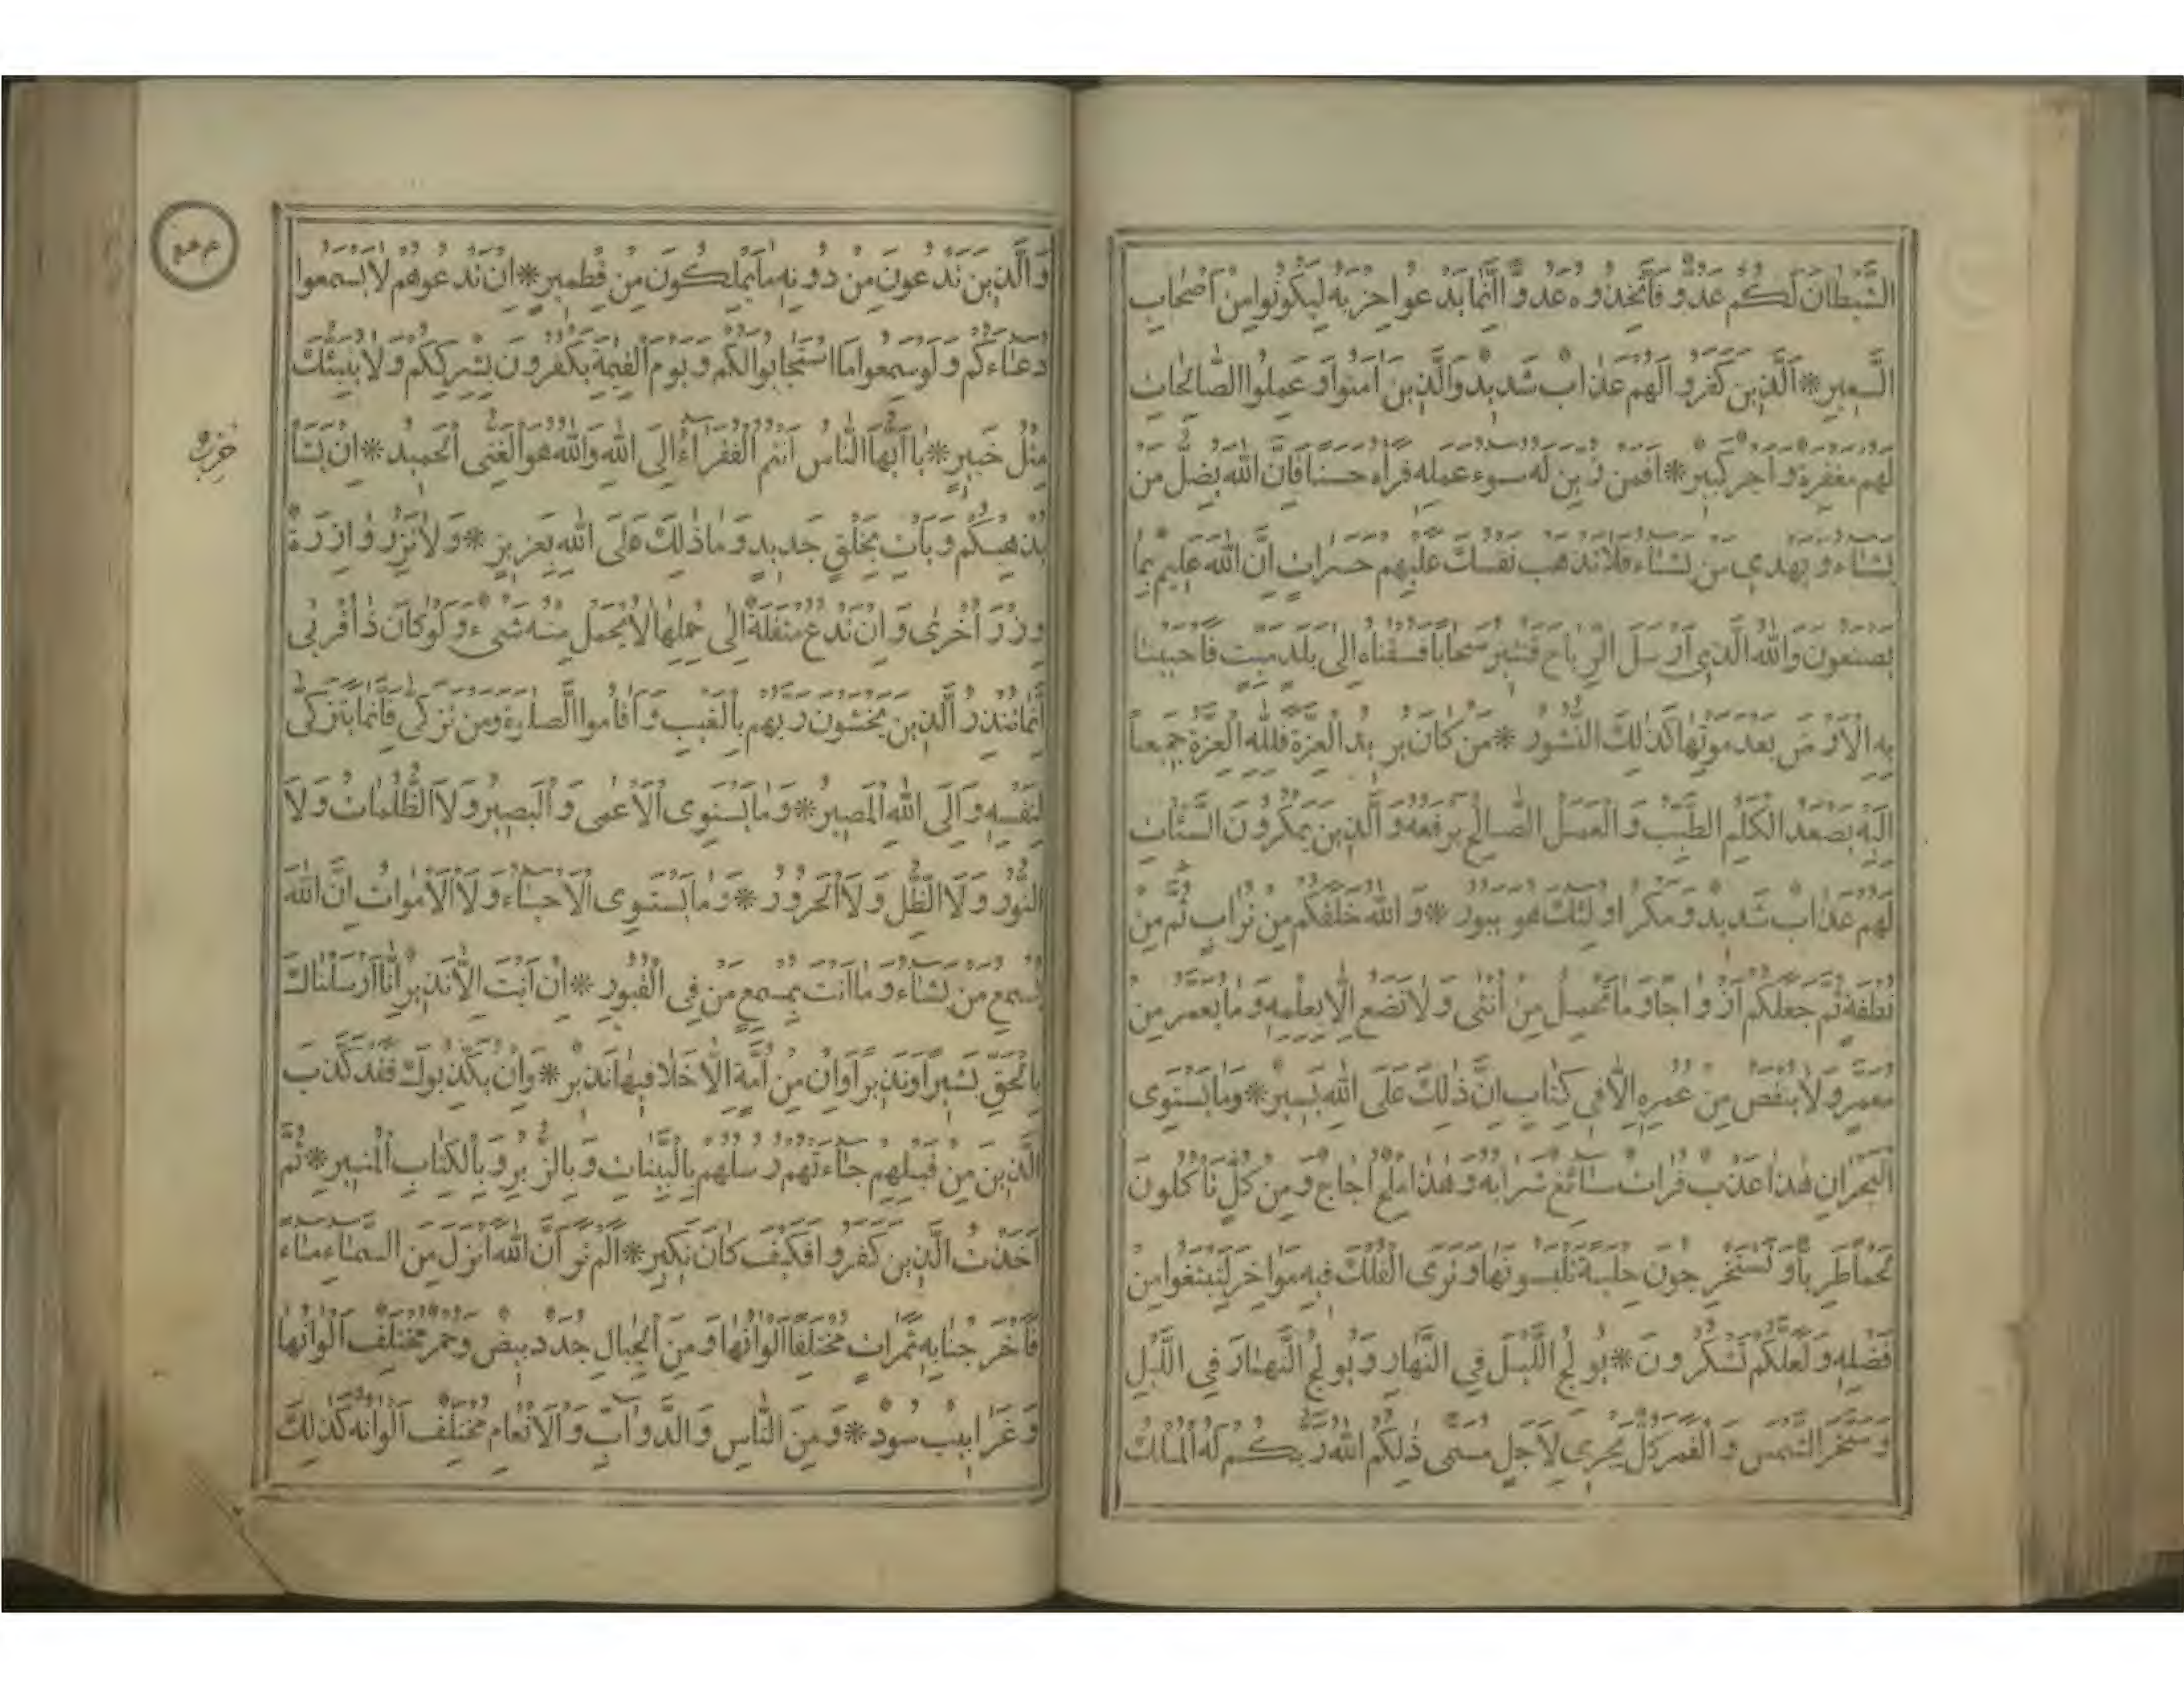 الشَّيْطَانَ لَكُمْ عَدُوٌّ فَاتَّخِذُوهُ عَدُوًّا إِنَّمَا يَدْعُوا حِزْبَهُ لِيَكُونُوا مِنْ أَصْحَابِ
السَّعِيرِ * اَلَّذِينَ كَفَرُوا لَهُمْ عَذَابٌ شَدِيدٌ وَالَّذِينَ آمَنُوا وَعَمِلُوا الصَّالِحَاتِ
لَهُمْ مَغْفِرَةٌ وَأَجْرٌ كَبِيرٌ * أَفَمَنْ زُيِّنَ لَهُ سُوءُ عَمَلِهِ فَرَآهُ حَسَنًا فَإِنَّ اللهَ يُضِلُّ مَنْ
يَشَاءُ وَيَهْدِي مَنْ يَشَاءُ فَلَا تَذْهَبْ نَفْسُكَ عَلَيْهِمْ حَسَرَاتٍ إِنَّ اللهَ عَلِيمٌ بِمَا
يَصْنَعُونَ وَاللهُ الَّذِي أَرْسَلَ الرِّيَاحَ فَتُثِيرُ سَحَابًا فَسُقْنَاهُ إِلَى بَلَدٍ مَيِّتٍ فَأَحْيَيْنَا
بِهِ الْأَرْضَ بَعْدَ مَوْتِهَا كَذَلِكَ النُّشُورُ * مَنْ كَانَ يُرِيدُ الْعِزَّةَ فَلِلَّهِ الْعِزَّةُ جَمِيعاً
إِلَيْهِ يَصْعَدُ الْكَلِمُ الطَّيِّبُ وَالْعَمَلُ الصَّالِحُ يَرْفَعُهُ وَالَّذِينَ يَمْكُرُونَ السَّيِّئَاتِ
لَهُمْ عَذَابٌ شَدِيدٌ وَمَكْرُ أُولَئِكَ هُوَ يَبُورُ * وَاللهُ خَلَقَكُمْ مِنْ تُرَابٍ ثُمَّ مِنْ
نُطْفَةٍ ثُمَّ جَعَلَكُمْ أَزْوَاجًا وَمَا تَحْمِلُ مِنْ أُنْثَى وَلَا تَضَعُ إِلَّا بِعِلْمِهِ وَمَا يُعَمَّرُ مِنْ
مُعَمَّرٍ وَلَا يُنْقَصُ مِنْ عُمُرِهِ إِلَّا فِي كِتَابٍ إِنَّ ذَلِكَ عَلَى اللهِ يَسِيرٌ * وَمَا يَسْتَوِي
الْبَحْرَانِ هَذَا عَذْبٌ فُرَاتٌ سَائِغٌ شَرَابُهُ وَهَذَا مِلْحٌ أُجَاجٌ وَمِنْ كُلٍّ تَأْكُلُونَ
لَحْمًا طَرِيًّا وَتَسْتَخْرِجُونَ حِلْيَةً تَلْبَسُونَهَا وَتَرَى الْفُلْكَ فِيهِ مَوَاخِرَ لِتَبْتَغُوا مِنْ
فَضْلِهِ وَلَعَلَّكُمْ تَشْكُرُونَ * يُولِجُ اللَّيْلَ فِي النَّهَارِ وَيُولِجُ النَّهَارَ فِي اللَّيْلِ
وَسَخَّرَ الشَّمْسَ وَالْقَمَرَ كُلٌّ يَجْرِي لِأَجَلٍ مُسَمًّى ذَلِكُمُ اللهُ رَبُّكُمْ لَهُ الْمُلْكُ
وَالَّذِينَ تَدْعُونَ مِنْ دُونِهِ مَا يَمْلِكُونَ مِنْ قِطْمِيرٍ * إِنْ تَدْعُوهُمْ لَا يَسْمَعُوا
دُعَاءَكُمْ وَلَوْ سَمِعُوا مَا اسْتَجَابُوا لَكُمْ وَيَوْمَ الْقِيمَةِ يَكْفُرُونَ بِشِرْكِكُمْ وَلَا يُنَبِّئُكَ
مِثْلُ خَبِيرٍ * يَا أَيُّهَا النَّاسُ أَنْتُمُ الْفُقَرَاءُ إِلَى اللهِ وَاللهُ هُوَ الْغَنِيُّ الْحَمِيدُ * إِنْ يَشَأْ
يُذْهِبْكُمْ وَيَأْتِ بِخَلْقٍ جَدِيدٍ وَمَا ذَلِكَ عَلَى اللهِ بِعَزِيزٍ * وَلَا تَزِرُ وَازِرَةٌ
وِزْرَ أُخْرَى وَإِنْ تَدْعُ مُثْقَلَةٌ إِلَى حِمْلِهَا لَا يُحْمَلْ مِنْهُ شَيْءٌ وَلَوْ كَانَ ذَا قُرْبَى
إِنَّمَا تُنْذِرُ الَّذِينَ يَخْشَوْنَ رَبَّهُمْ بِالْغَيْبِ وَأَقَامُوا الصَّلوةَ وَمَنْ تَزَكَّى فَإِنَّمَا يَتَزَكَّى
لِنَفْسِهِ وَإِلَى اللهِ الْمَصِيرُ * وَمَا يَسْتَوِي الْأَعْمَى وَالْبَصِيرُ وَلَا الظُّلُمَاتُ وَلَا
النُّورُ وَلَا الظِّلُّ وَلَا الْحَرُورُ * وَمَا يَسْتَوِي الْأَحْيَاءُ وَلَا الْأَمْوَاتُ إِنَّ اللهَ
يُسْمِعُ مَنْ يَشَاءُ وَمَا أَنْتَ بِمُسْمِعٍ مَنْ فِي الْقُبُورِ * إِنْ أَنْتَ إِلَّا نَذِيرٌ إِنَّا أَرْسَلْنَاكَ
بِالْحَقِّ بَشِيرًا وَنَذِيرًا وَإِنْ مِنْ أُمَّةٍ إِلَّا خَلَا فِيهَا نَذِيرٌ * وَإِنْ يُكَذِّبُوكَ فَقَدْ كَذَّبَ
الَّذِينَ مِنْ قَبْلِهِمْ جَاءَتْهُمْ رُسُلُهُمْ بِالْبَيِّنَاتِ وَبِالزُّبُرِ وَبِالْكِتَابِ الْمُنِيرِ * ثُمَّ
أَخَذْتُ الَّذِينَ كَفَرُوا فَكَيْفَ كَانَ نَكِيرِ * أَلَمْ تَرَ أَنَّ اللهَ أَنْزَلَ مِنَ السَّمَاءِ مَاءً
فَأَخْرَجْنَا بِهِ ثَمَرَاتٍ مُخْتَلِفًا أَلْوَانُهَا وَمِنَ الْجِبَالِ جُدَدٌ بِيضٌ وَحُمْرٌ مُخْتَلِفٌ أَلْوَانُهَا
وَغَرَابِيبُ سُودٌ * وَمِنَ النَّاسِ وَالدَّوَابِّ وَالْأَنْعَامِ مُخْتَلِفٌ أَلْوَانُهُ كَذَلِكَ
حزب